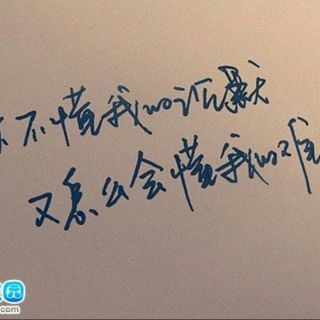 不懂我的沉默
又怎么会懂我的难
园